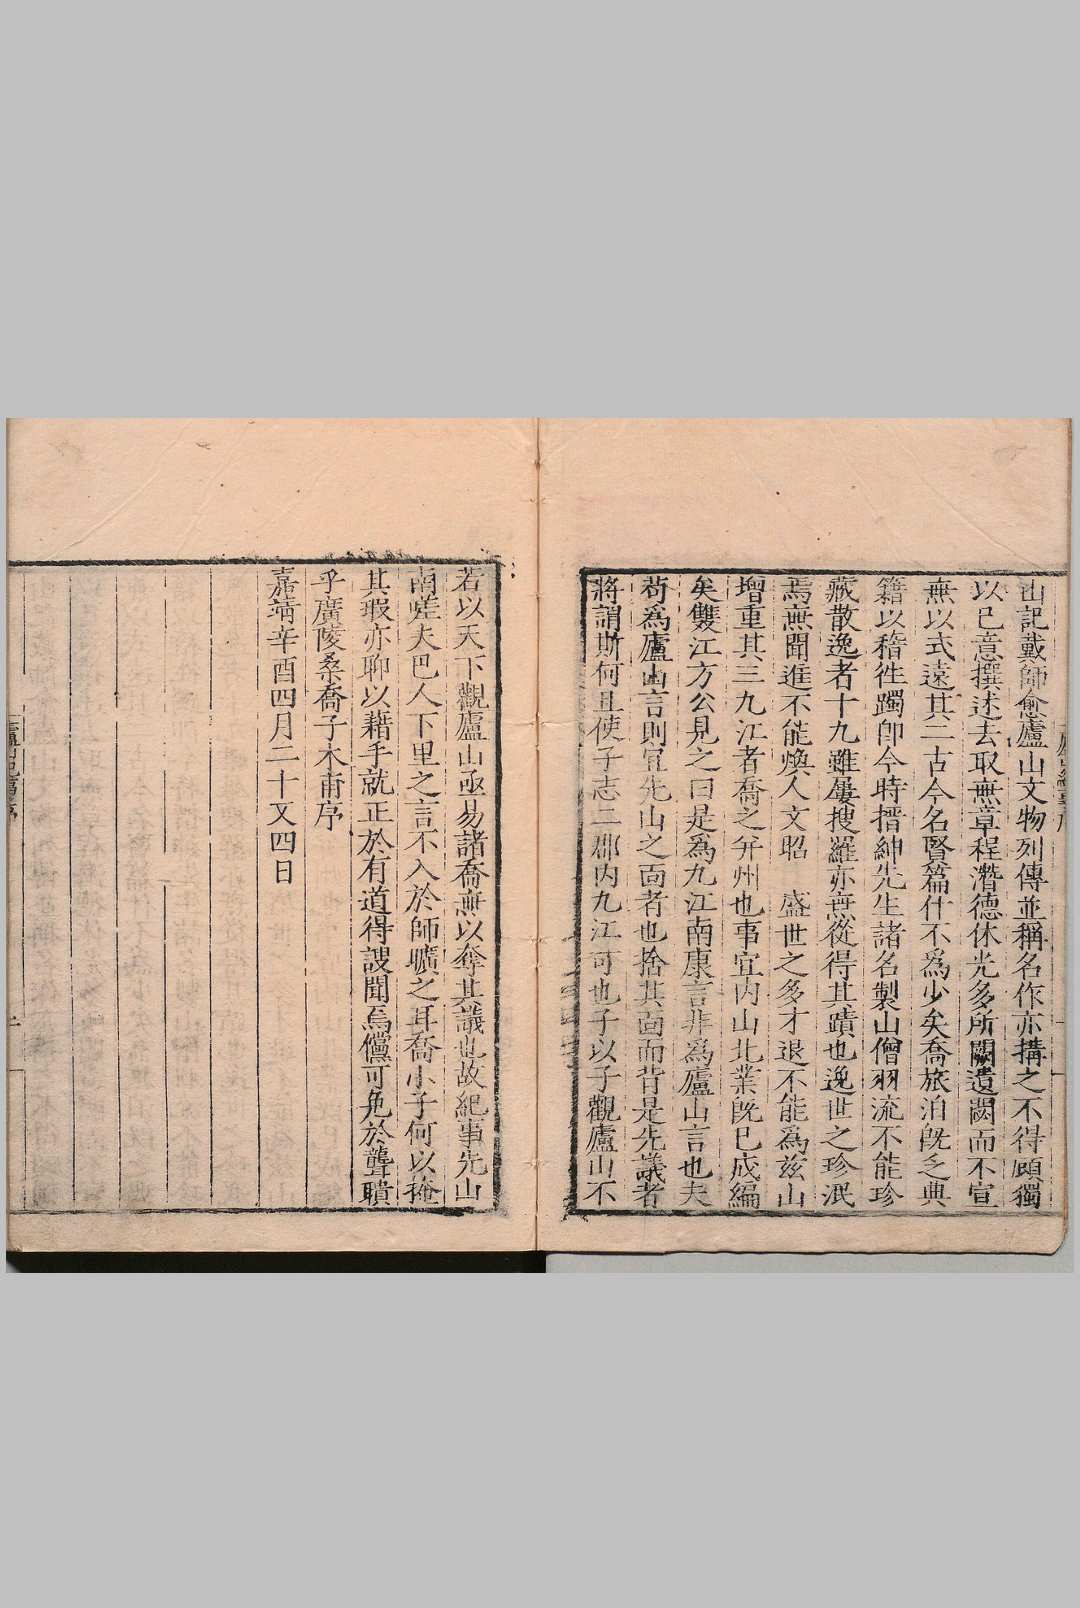 山記戴師愈廬山文物列傳並稱名作亦搆之不得頋獨
以已意撰述去取無章程潛德休光多所闕遺闕而不宣
無以式遠其二古今名賢篇什不爲少矣喬旅泊旣乏典
籍以稽徃躅卽今時搢紳先生諸名製山僧羽流不能珍
藏散逸者十九雖屢搜羅亦無從得其蹟也逸世之珍泯
焉無聞進不能煥人文昭　盛世之多才退不能爲兹山
增重其三九江者喬之幷州也事宜内山北業旣已成編
矣雙江方公見之曰是爲九江南康言非爲廬山言也夫
苟爲廬山言則宜先山之面者也捨其面而背是先議者
將謂斯何且使子志二郡内九江可也子以子觀廬山不
若以天下觀廬山亟易諸喬無以奪其議也故紀事先山
南嗟夫巴人下里之言不入於師曠之耳喬小子何以掩
其瑕亦聊以藉手就正於有道得謏聞焉儻可免於聾聵
乎廣陵桑喬子木甫序
嘉靖辛酉四月二十又四日